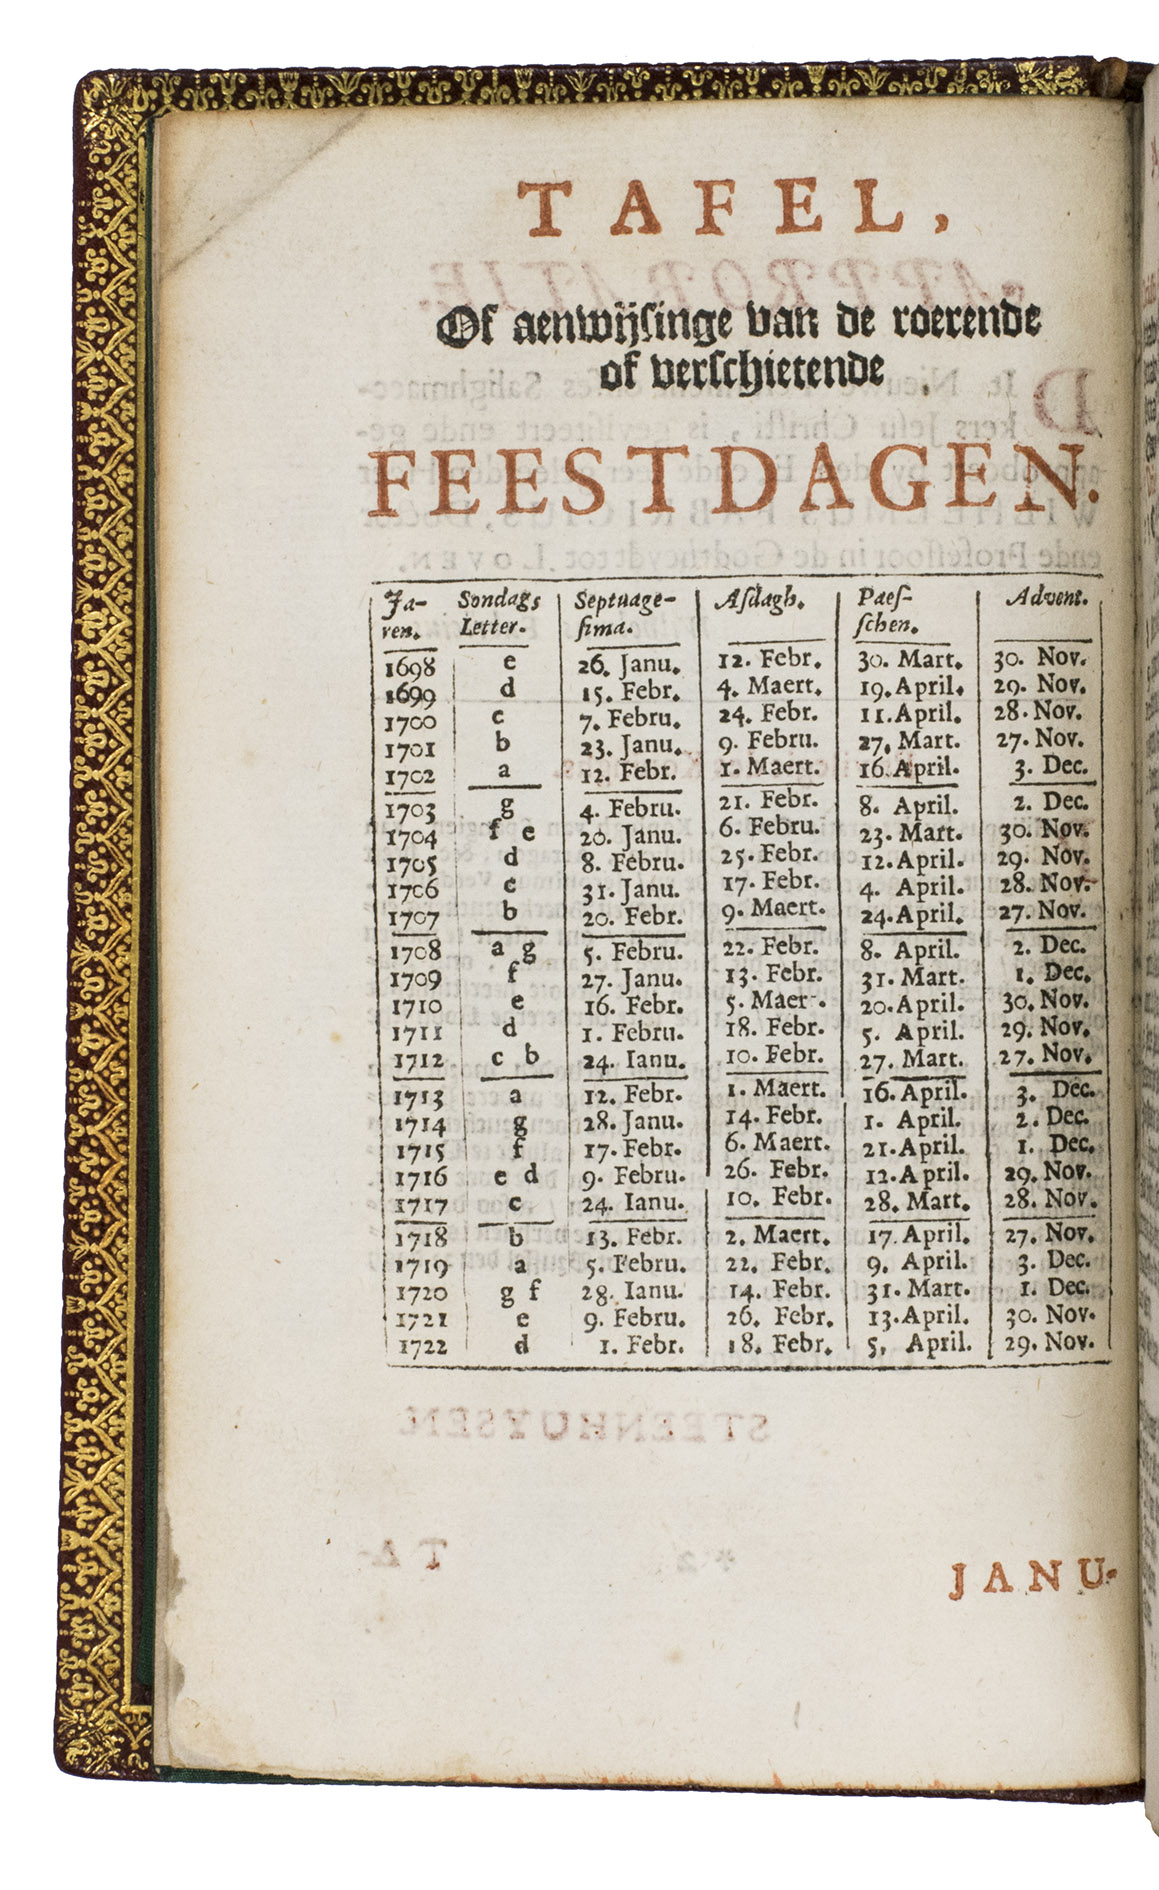 TAFEL,
Of aenwijſinge van de roerende
of verſchietende
FEESTDAGEN.
Ja- Sondags Septuage- Aſdagh. Paeſ- Advent.
ren. Letter. ſima. ſchen.
1698 e 26. Janu. 12. Febr. 30. Mart. 30. Nov.
1699 d 15. Febr. 4. Maert. 19. April. 29. Nov.
1700 c 7. Febru. 24. Febr. 11. April. 28. Nov.
1701 b 23. Janu. 9. Febru. 27. Mart. 27. Nov.
1702 a 12. Febr. 1. Maert. 16. April. 3. Dec.
1703 g 4. Febru. 21. Febr. 8. April. 2. Dec.
1704 f e 20. Janu. 6. Febru. 23. Mart. 30. Nov.
1705 d 8. Febru. 25. Febr. 12. April. 29. Nov.
1706 c 31. Janu. 17. Febr. 4. April. 28. Nov.
1707 b 20. Febr. 9. Maert. 24. April. 27. Nov.
1708 a g 5. Febru. 22. Febr. 8. April. 2. Dec.
1709 f 27. Janu. 13. Febr. 31. Mart. 1. Dec.
1710 e 16. Febr. 5. Maer . 20. April. 30. Nov.
1711 d 1. Febru. 18. Febr. 5. April. 29. Nov.
1712 c b 24. Ianu. 10. Febr. 27. Mart. 27. Nov.
1713 a 12. Febr. 1. Maert. 16. April. 3. Dec.
1714 g 28. Janu. 14. Febr. 1. April. 2. Dec.
1715 f 17. Febr. 6. Maert. 21. April. 1. Dec.
1716 e d 9. Febru. 26. Febr. 12. April. 29. Nov.
1717 c 24. Ianu. 10. Febr. 28. Mart. 28. Nov.
1718 b 13. Febr. 2. Maert. 17. April. 27. Nov.
1719 a 5. Febru. 22. Febr. 9. April. 3. Dec.
1720 g f 28. Ianu. 14. Febr. 31. Mart. 1. Dec.
1721 e 9. Febru. 26. Febr. 13. April. 30. Nov.
1722 d 1. Febr. 18. Febr. 5. April. 29. Nov.
JANU-